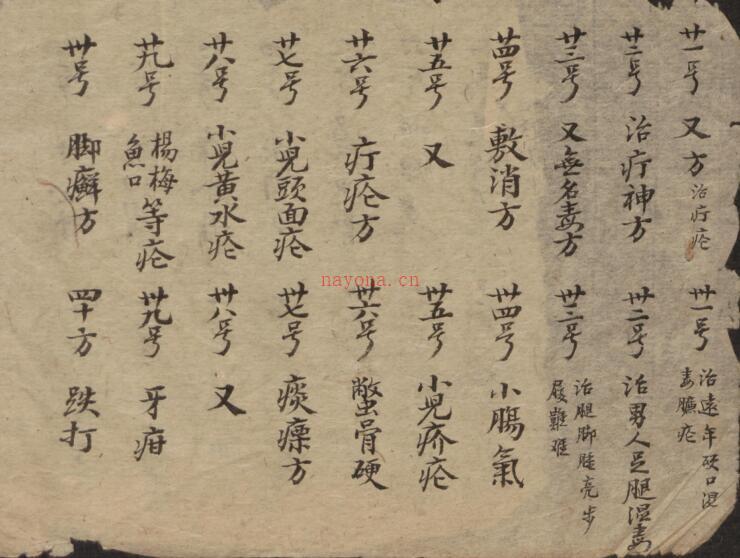 廿一号 又方 治疔疮
廿二号 治疔神方
廿三号 又無名毒方
廿四号 敷消方
廿五号 又
廿六号 疔疮方
廿七号 小児頭面疮
廿八号 小児黄水疮
廿九号 楊梅魚口等疮
卅号 脚癬方
卅一号 治遠年硬口湿毒臁疮
卅二号 治男人足腿湿毒
卅三号 治腿脚腫亮步履難
卅四号 小腸氣
卅五号 小児疥疮
卅六号 鱉骨硬
卅七号 痰瘰方
卅八号 又
卅九号 牙疳
四十方 跌打
nayona.cn